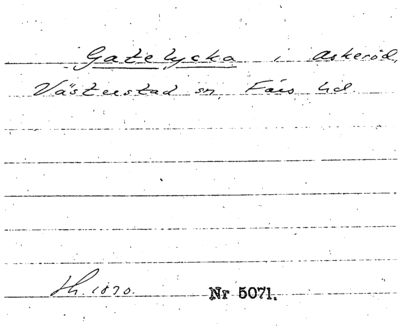 Gatelycka i Askeröd,
Västerstad sn, Färs hd.
Lh. 1870. Nr 5071.